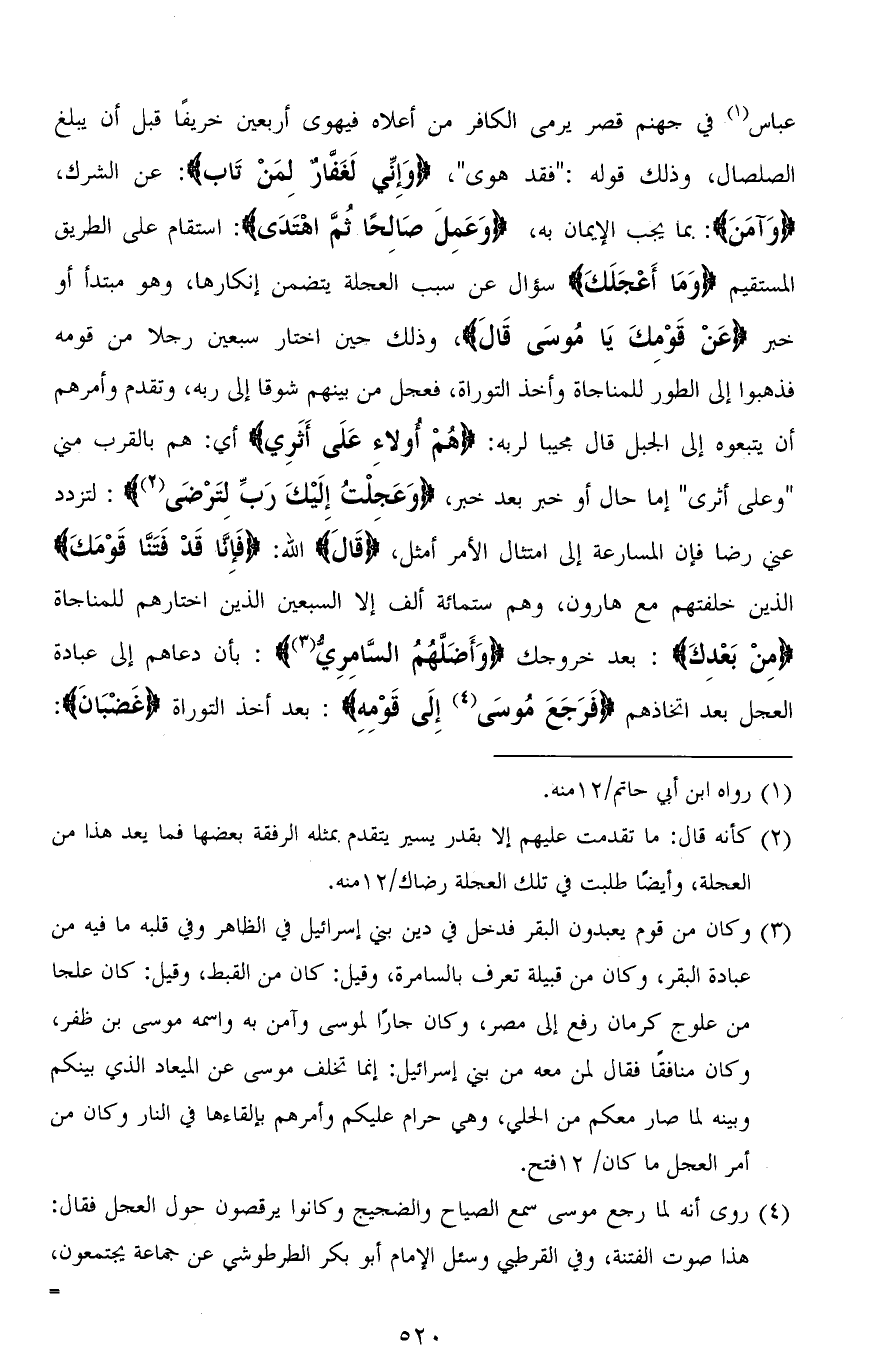 عباس(١) في جهنم قصر يرمى الكافر من أعلاه فيهوى أربعين خريفًا قبل أن يبلغ
الصلصال، وذلك قوله :"فقد هوى"، ﴿وَإِنِّي لَغَفَّارٌ لِمَنْ تَاب﴾: عن الشرك،
﴿وَآمَنَ﴾: بما يجب الإيمان به، ﴿وَعَمِلَ صَالِحًا ثُمَّ اهْتَدَى﴾: استقام على الطريق
المستقيم ﴿وَمَا أَعْجَلَكَ﴾ سؤال عن سبب العجلة يتضمن إنكارها، وهو مبتدأ أو
خبر ﴿عَنْ قَوْمِكَ يَا مُوسَى قَالَ﴾، وذلك حين اختار سبعين رجلا من قومه
فذهبوا إلى الطور للمناجاة وأخذ التوراة، فعجل من بينهم شوقا إلى ربه، وتقدم وأمرهم
أن يتبعوه إلى الجبل قال مجيبا لربه: ﴿هُمْ أُولاءِ عَلَى أَثَرِي﴾ أي: هم بالقرب مني
"وعلى أثرى" إما حال أو خبر بعد خبر، ﴿وَعَجِلْتُ إِلَيْكَ رَبِّ لِتَرْضَى(٢)﴾ : لتزدد
عني رضا فإن المسارعة إلى امتثال الأمر أمثل، ﴿قَالَ﴾ الله: ﴿فَإِنَّا قَدْ فَتَنَّا قَوْمَكَ﴾
الذين خلفتهم مع هارون، وهم ستمائة ألف إلا السبعين الذين اختارهم للمناجاة
﴿مِنْ بَعْدِكَ﴾ : بعد خروجك ﴿وَأَضَلَّهُمُ السَّامِرِيُّ(٣)﴾ : بأن دعاهم إلى عبادة
العجل بعد اتخاذهم ﴿فَرَجَعَ مُوسَى(٤) إِلَى قَوْمِهِ﴾ : بعد أخذ التوراة ﴿غَضْبَانَ﴾:
(١) رواه ابن أبي حاتم/١٢منه.
(٢) كأنه قال: ما تقدمت عليهم إلا بقدر يسير يتقدم بمثله الرفقة بعضها فما يعد هذا من
العجلة، وأيضًا طلبت في تلك العجلة رضاك/١٢منه.
(٣) وكان من قوم يعبدون البقر فدخل في دين بني إسرائيل في الظاهر وفي قلبه ما فيه من
عبادة البقر، وكان من قبيلة تعرف بالسامرة، وقيل: كان من القبط، وقيل: كان علجا
من علوج كرمان رفع إلى مصر، وكان جارًا لموسى وآمن به واسمه موسى بن ظفر،
وكان منافقًا فقال لمن معه من بني إسرائيل: إنما تخلف موسى عن الميعاد الذي بينكم
وبينه لما صار معكم من الحلي، وهي حرام عليكم وأمرهم بإلقاءها في النار وكان من
أمر العجل ما كان/ ١٢فتح.
(٤) روى أنه لما رجع موسى سمع الصياح والضجيج وكانوا يرقصون حول العجل فقال:
هذا صوت الفتنة، وفي القرطبي وسئل الإمام أبو بكر الطرطوشي عن جماعة يجتمعون،
=
٥٢٠